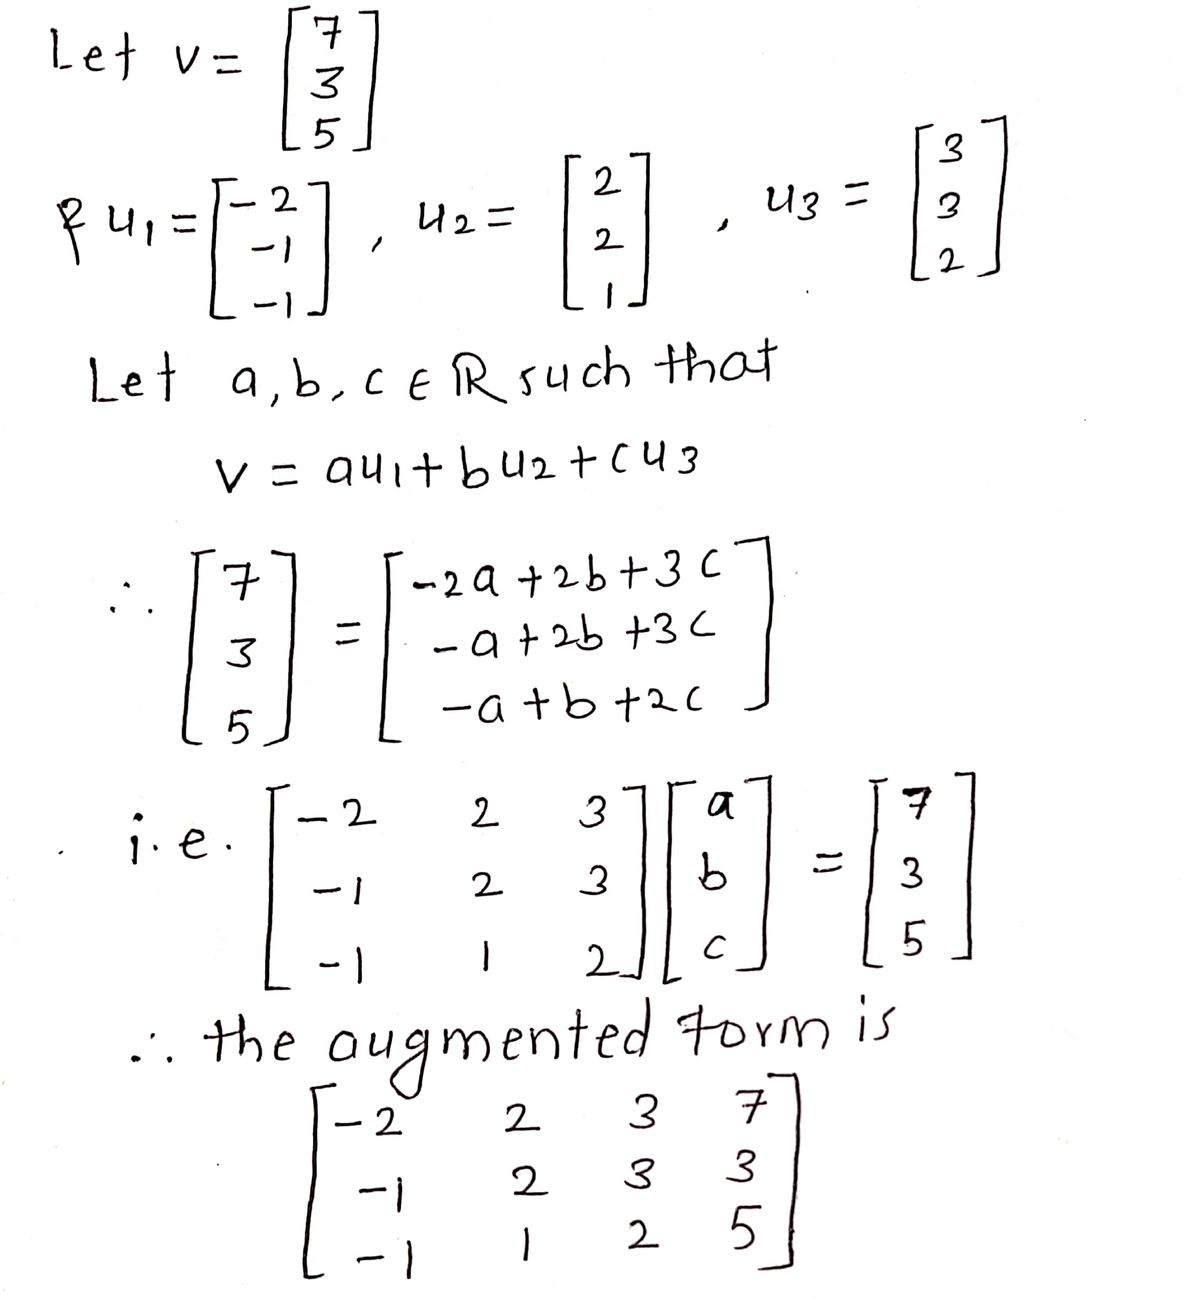 Let v = [7 3 5]
& u1 = [-2 -1 -1] , u2 = [2 2 1] , u3 = [3 3 2]
Let a, b, c ∈ ℝ such that
v = au1 + bu2 + cu3
∴ [7 3 5] = [-2a + 2b + 3c
-a + 2b + 3c
-a + b + 2c]
i.e. [-2 2 3
-1 2 3
-1 1 2] [a b c] = [7 3 5]
∴ the augmented form is
[-2 2 3 7
-1 2 3 3
-1 1 2 5]